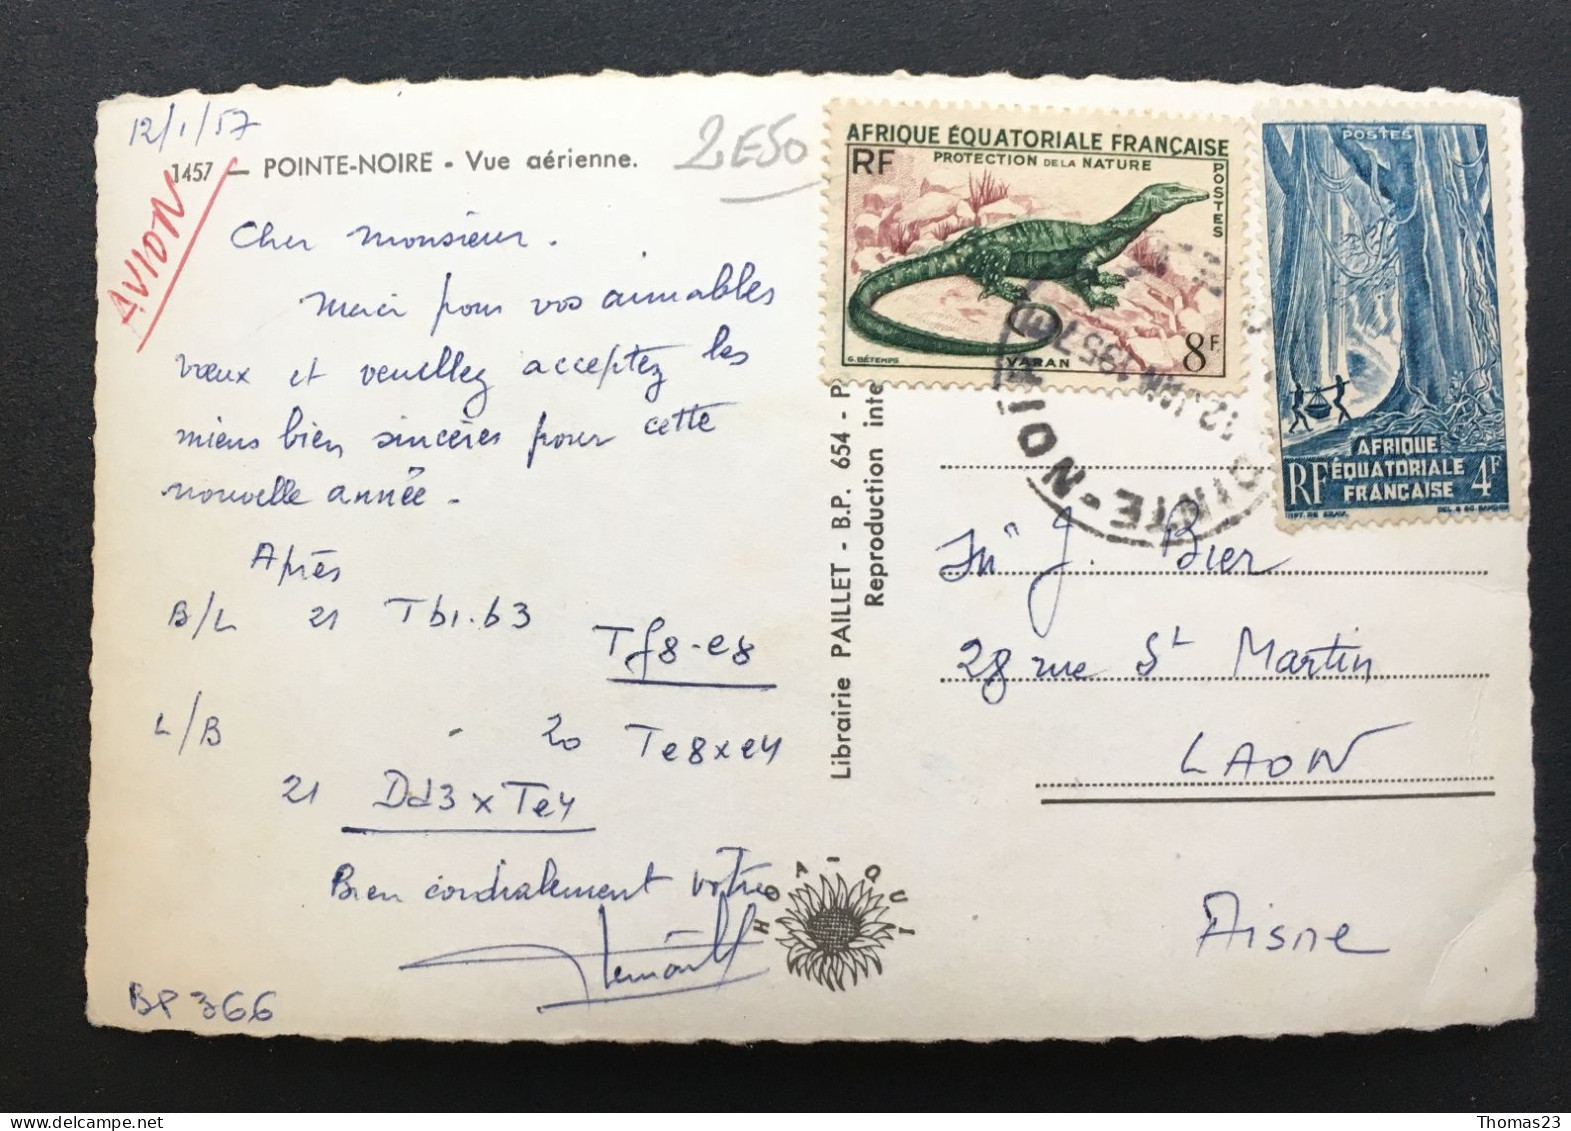 12/1/57
1457 — POINTE-NOIRE - Vue aérienne.
2E50
AVION
Cher Monsieur.
Merci pour vos aimables
vœux et veuillez acceptez les
miens bien sincères pour cette
nouvelle année.
Après
B/L 21 Tb1.b3
Tf8-e8
L/B - 20 Te8xe4
21 Dd3 x Te4
Bien cordialement votre
BP 366
Librairie PAILLET - B.P. 654 - P
Reproduction inte
HOA-QUI
AFRIQUE ÉQUATORIALE FRANÇAISE
RF PROTECTION DE LA NATURE
POSTES
G. BÉTEMPS VARAN 8F
POSTES
AFRIQUE
RF ÉQUATORIALE 4F
FRANÇAISE
POINTE-NOIRE
12 JAN 1957
J. Bier
28 rue St Martin
LAON
Aisne
Thomas23